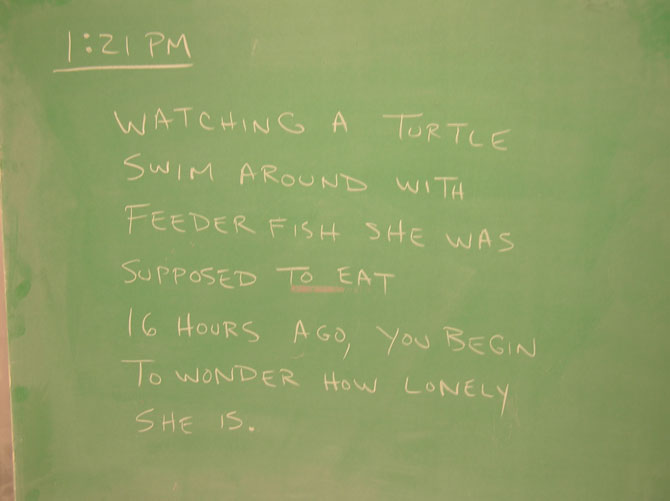 1:21 PM
WATCHING A TURTLE
SWIM AROUND WITH
FEEDER FISH SHE WAS
SUPPOSED TO EAT
16 HOURS AGO, YOU BEGIN
TO WONDER HOW LONELY
SHE IS.